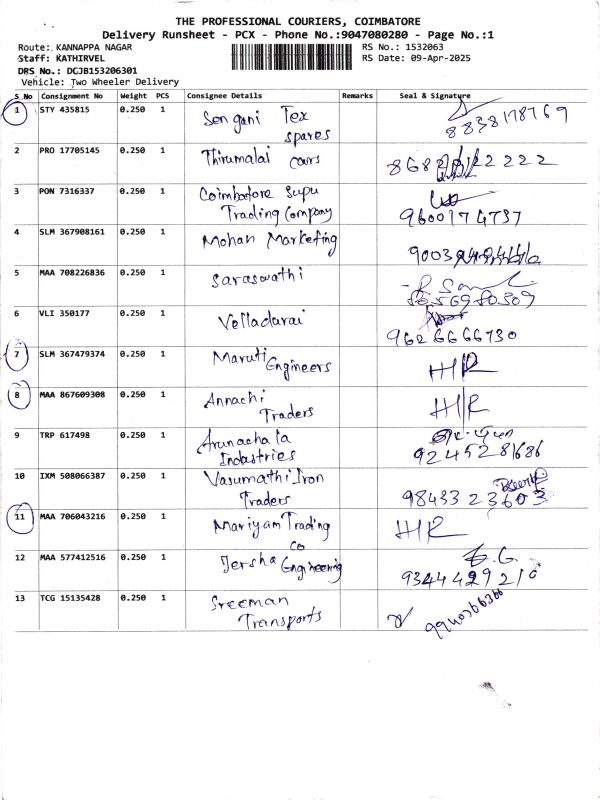 THE PROFESSIONAL COURIERS, COIMBATORE
Delivery Runsheet - PCX - Phone No.:9047080280 - Page No.:1
Route: KANNAPPA NAGAR RS No.: 1532063
Staff: KATHIRVEL RS Date: 09-Apr-2025
DRS No.: DGJB153206301
Vehicle: Two Wheeler Delivery
S No Consignment No Weight PCS Consignee Details Remarks Seal & Signature
1 STY 435815 0.250 1 Sen gani Tex
spares 8838178769
2 PRO 17705145 0.250 1 Thirumalai cars
3 PON 7316337 0.250 1 Coimbatore Supu
Trading Company 9600174737
4 SLM 367908161 0.250 1 Mohan Marketing
5 MAA 708226836 0.250 1 Saraswathi
6 VLI 350177 0.250 1 Velladurai 9626666730
7 SLM 367479374 0.250 1 Maruti Engineers H/R
8 MAA 867609308 0.250 1 Annachi
Traders H/R
9 TRP 617498 0.250 1 Arunachala
Industries 9245281686
10 IXM 508066387 0.250 1 Vasumathi Iron
Traders 9843323603
11 MAA 706043216 0.250 1 Mariyam Trading
Co H/R
12 MAA 577412516 0.250 1 Jersha Engineering 9344429210
13 TCG 15135428 0.250 1 Sreeman
Transports